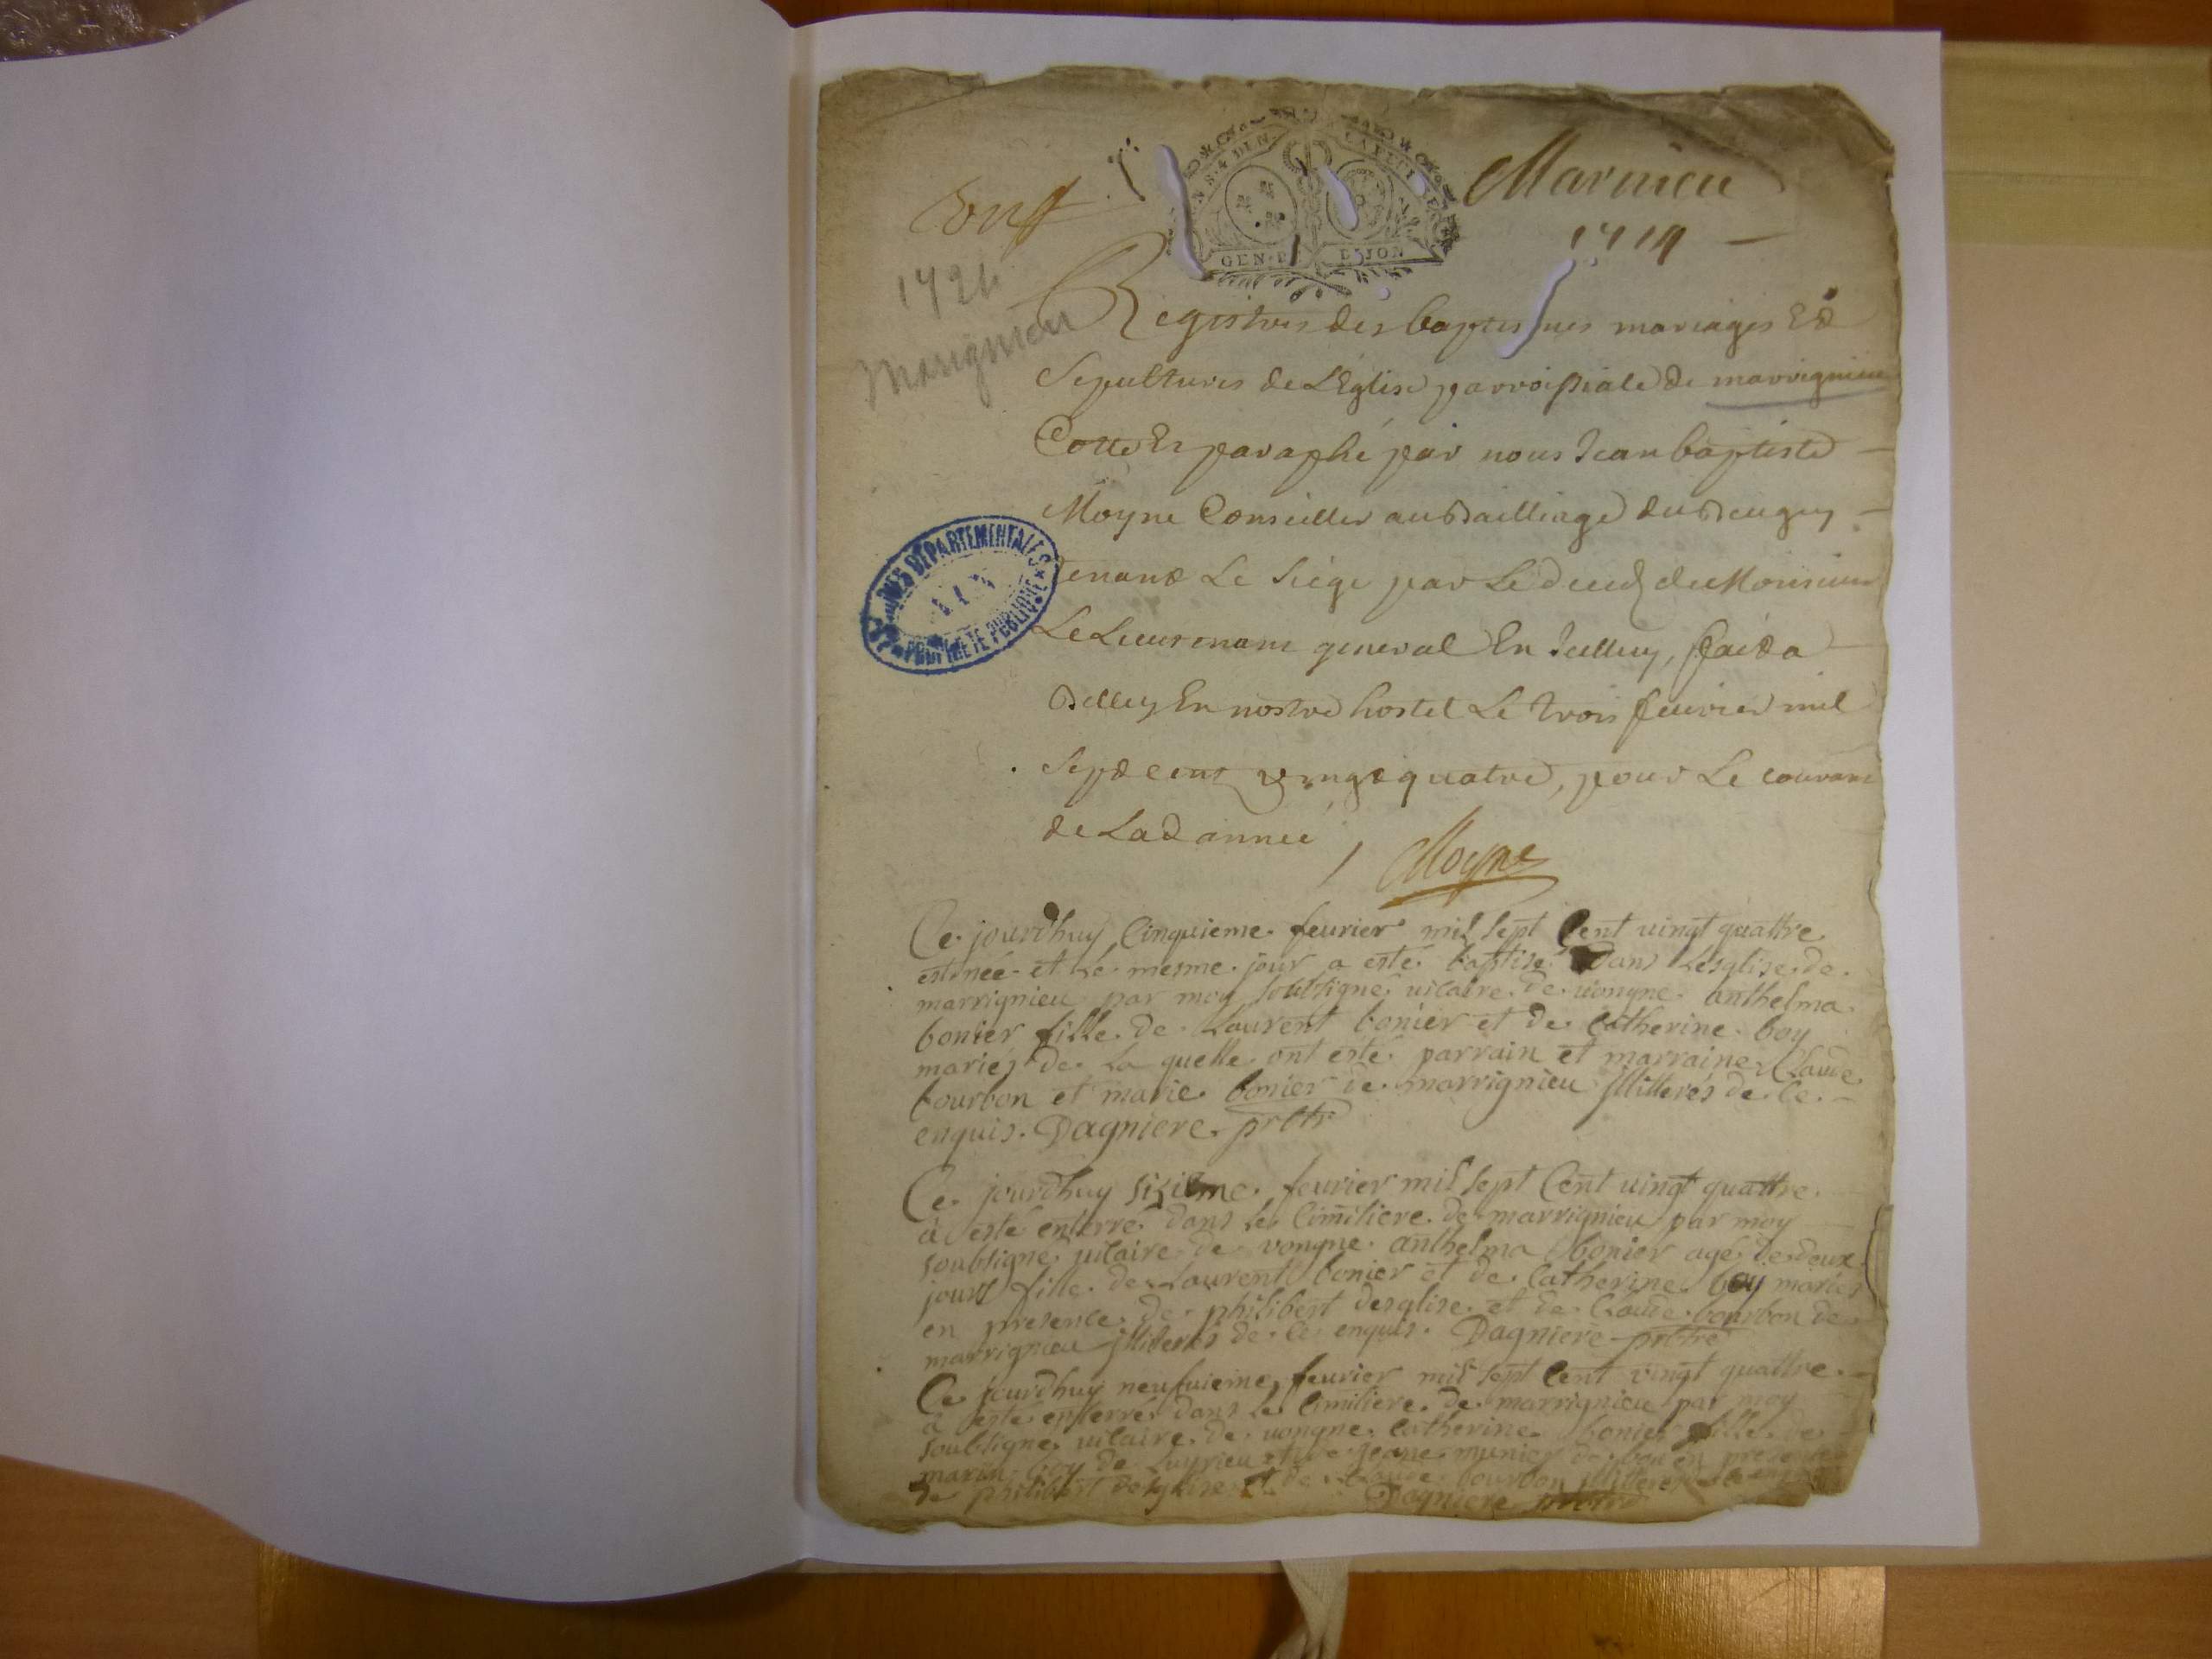 Marnieu
1724
Marignieu
GEN. D DIJON
Registres des baptesmes mariages Et
Sepultures de L'Eglise parroissiale de marrignieu
Cotté Et paraphé par nous Jean baptiste
Moyne Conseiller au Bailliage du Beugey
tenant Le siège par Le deced de Monsieur
Le Lieutenant general En icelluy, fait a
Belley En nostre hostel Le trois feurier mil
Sept cent vingt quatre, pour Le courant
de Lad annee
Moyne
ARCHIVES DÉPARTEMENTALES
AIN
PROPRIÉTÉ PUBLIQUE
Ce jourdhuy Cinquieme feurier mil sept Cent uingt quattre
est née et le mesme jour a esté baptisé dans Lesglise de
marrignieu par moy soubsigné uicaire de uongne anthelma
bonier fille de Laurent bonier et de Catherine boy
mariés de La quelle ont esté parrain et marraine Claude
bourbon et marie bonier de marrignieu jllitterés de ce
enquis. Dagniere prbtre
Ce jourdhuy sizieme feurier mil sept Cent uingt quattre
à esté enterré dans le Cimitiere de marrignieu par moy
soubsigné uicaire de vongne anthelma bonier agé de deux
jours fille de Laurent bonier et de Catherine boy mariés
en presence de philibert desglise et de Claude bourbon de
marrignieu jlliterés de ce enquis. Dagniere prbtre
Ce jourdhuy neufuieme feurier mil sept Cent vingt quattre
à esté enterré dans le Cimitiere de marrignieu par moy
soubsigné uicaire de uongne Catherine bonier fille de
marin boy de Luyrieu et de jeane munier de en presence
de philibert desglise et de Claude bourbon jlliterés de ce
Dagniere prbtre